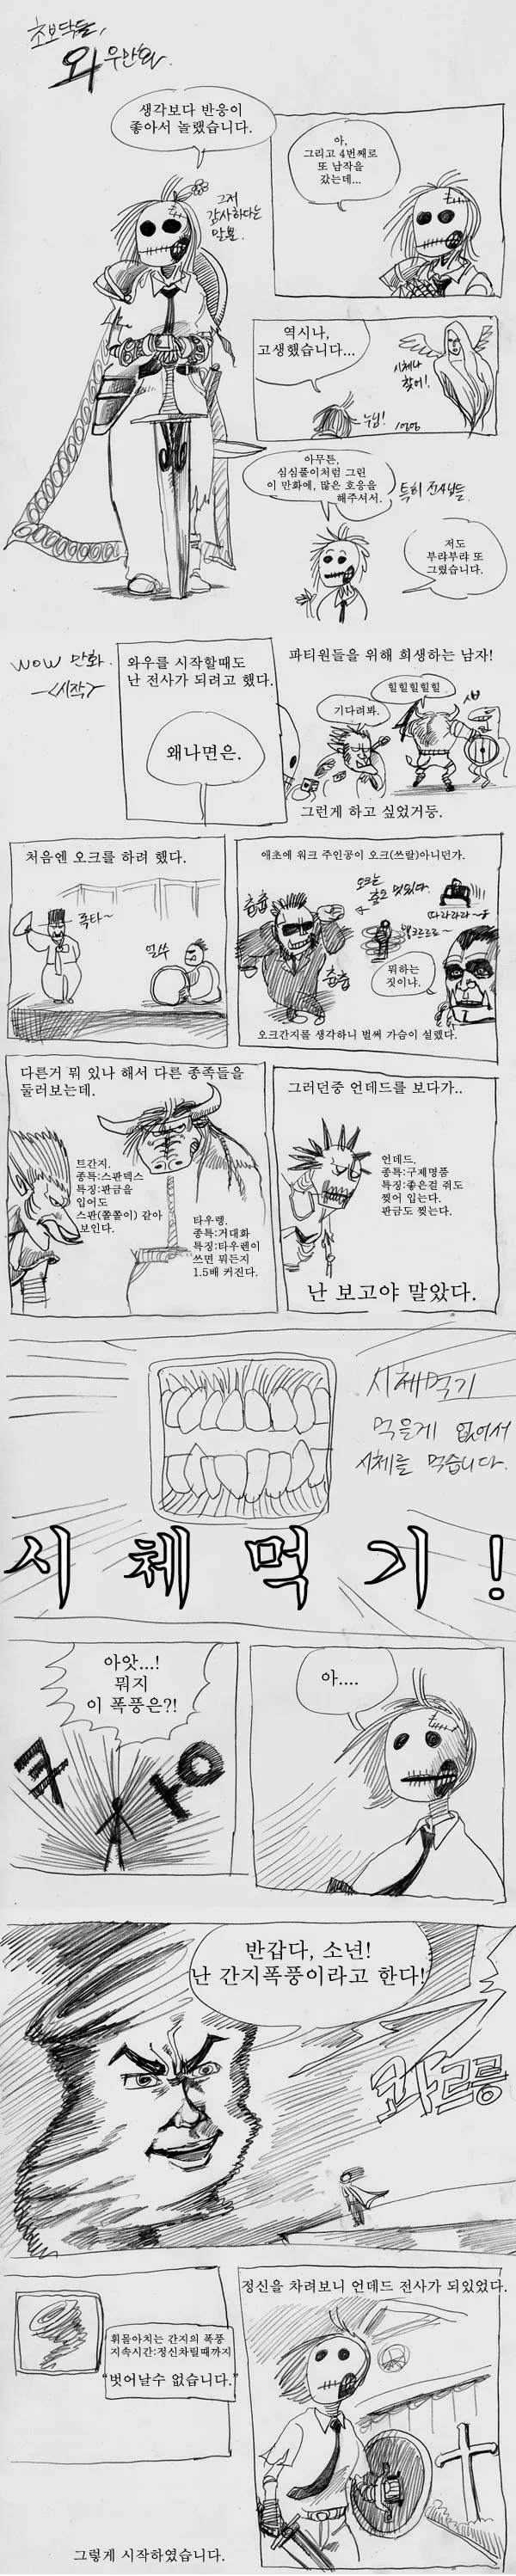 초보닥돌,
와우만화.
생각보다 반응이
좋아서 놀랬습니다.
그저
감사하다는
말뿐.
아,
그리고 4번째로
또 납작을
갔는데...
역시나,
고생했습니다...
시체나
찾어!
누님!
아무튼,
심심풀이처럼 그린
이 만화에, 많은 호응을
해주셔서.
특히 전사분들.
저도
부랴부랴 또
그렸습니다.
WOW 만화.
-<시작>
와우를 시작할때도
난 전사가 되려고 했다.
왜나면은.
파티원들을 위해 희생하는 남자!
기다려봐.
힐힐힐힐힐
그런게 하고 싶었거등.
처음엔 오크를 하려 했다.
록타~
얼쑤
애초에 워크 주인공이 오크(쓰랄)아니던가.
오크는
춤도 멋있다.
춤춤
춤춤
따라라라~
뭐하는
짓이냐.
오크간지를 생각하니 벌써 가슴이 설렜다.
다른거 뭐 있나 해서 다른 종족들을
둘러보는데.
트간지.
종특:스판텍스
특징:판금을
입어도
스판(쫄쫄이) 같아
보인다.
타우렌.
종특:거대화
특징:타우렌이
쓰면 뭐든지
1.5배 커진다.
그러던중 언데드를 보다가..
언데드.
종특:구제명품
특징:좋은걸 줘도
찢어 입는다.
판금도 찢는다.
난 보고야 말았다.
시체먹기
먹을게 없어서
시체를 먹습니다.
시체먹기!
아앗...!
뭐지
이 폭풍은?!
쿠오
아....
반갑다, 소년!
난 간지폭풍이라고 한다!
콰르릉
휘몰아치는 간지의 폭풍
지속시간:정신차릴때까지
"벗어날수 없습니다."
정신을 차려보니 언데드 전사가 되있었다.
그렇게 시작하였습니다.